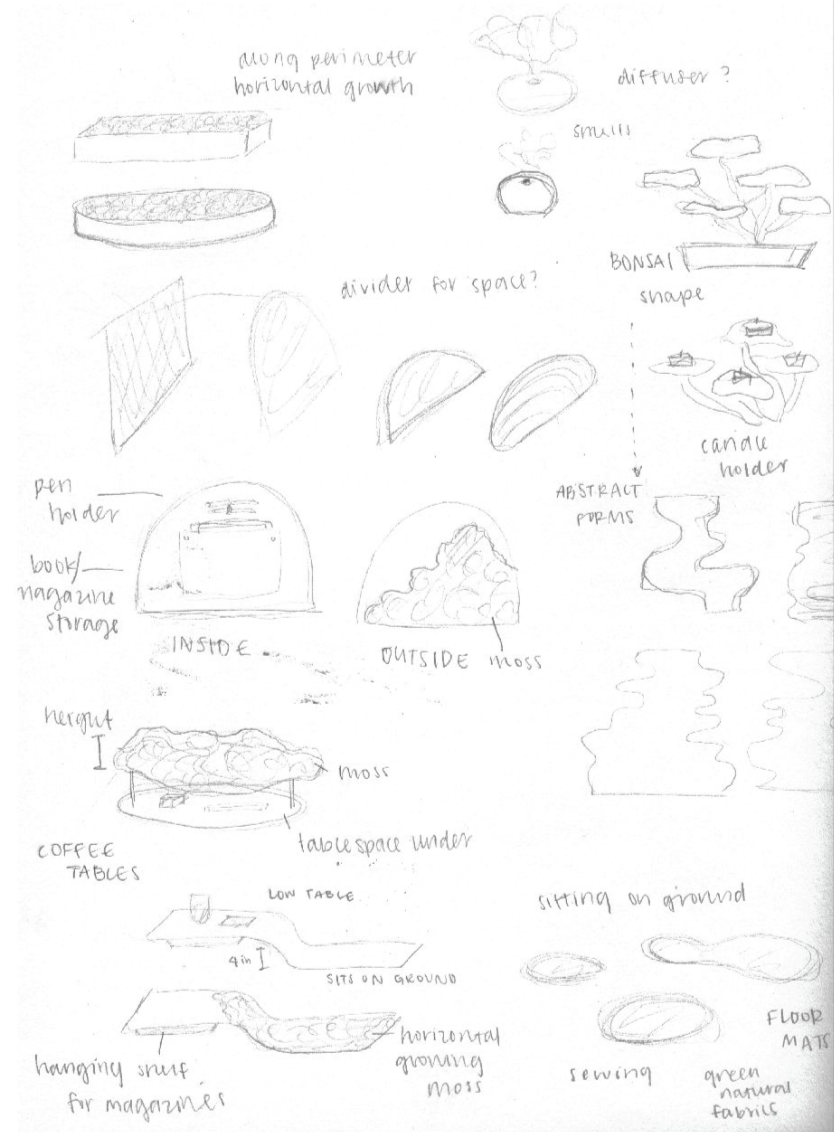 along perimeter
horizontal growth
diffuser ?
smells
BONSAI
shape
divider for space?
candle
holder
ABSTRACT
FORMS
pen
holder
book/
magazine
storage
INSIDE
OUTSIDE
moss
height
moss
table space under
COFFEE
TABLES
LOW TABLE
4in
SITS ON GROUND
sitting on ground
FLOOR
MATS
horizontal
growing
moss
hanging shelf
for magazines
sewing
green
natural
fabrics